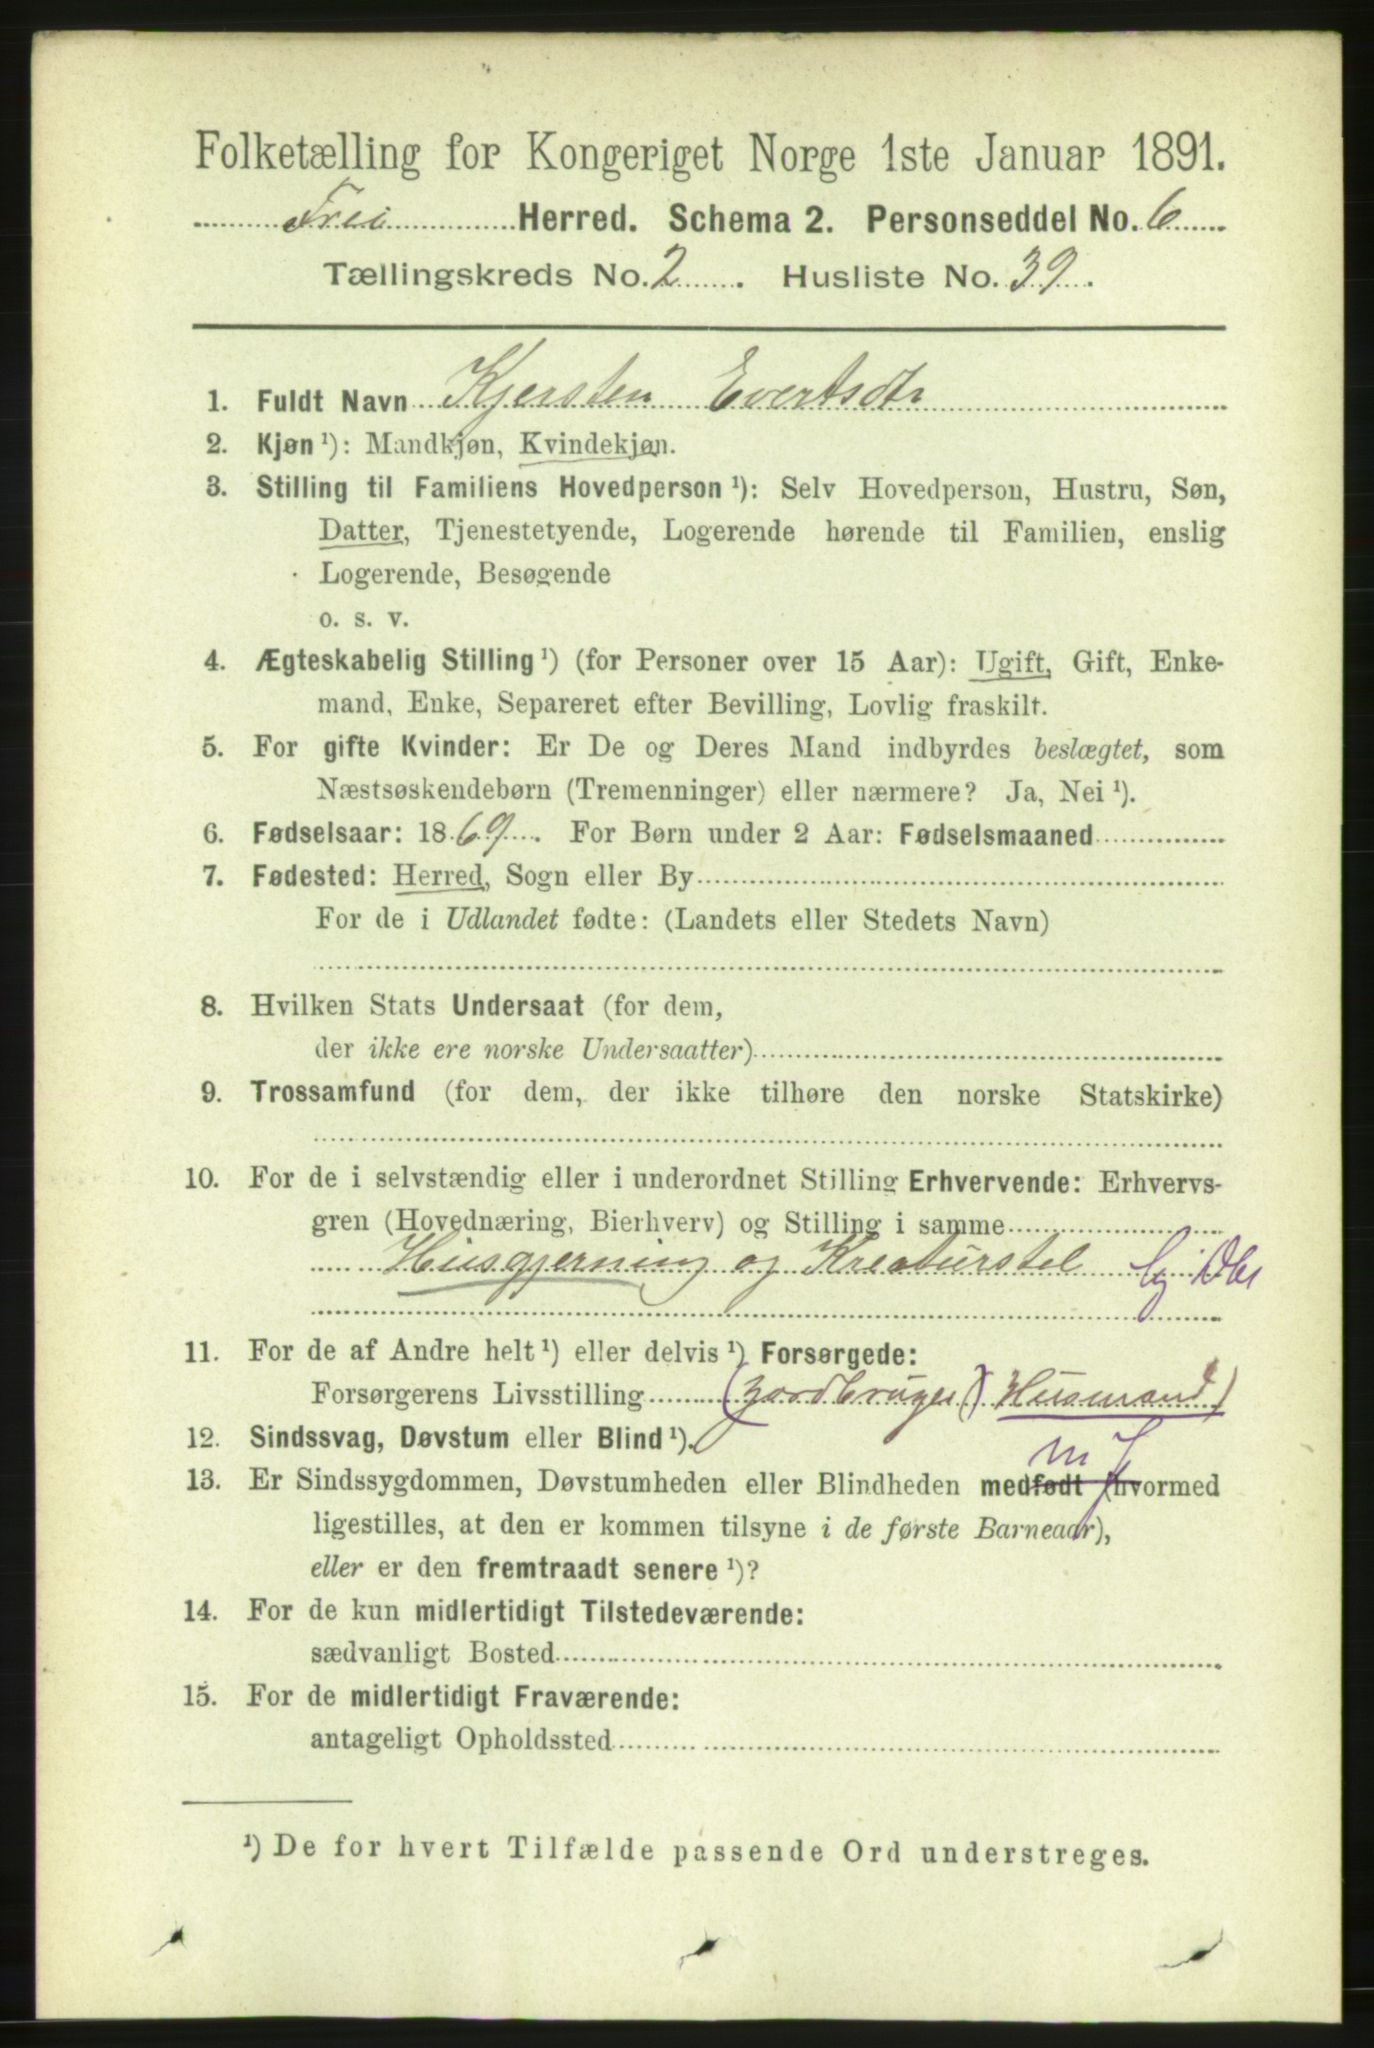 Folketælling for Kongeriget Norge 1ste Januar 1891.
Frei Herred. Schema 2. Personseddel No. 6
Tællingskreds No. 2. Husliste No. 39.
1. Fuldt Navn Kjersten Evertsdtr
2. Kjøn ¹): Mandkjøn, Kvindekjøn.
3. Stilling til Familiens Hovedperson ¹): Selv Hovedperson, Hustru, Søn,
Datter, Tjenestetyende, Logerende hørende til Familien, enslig
Logerende, Besøgende
o. s. v.
4. Ægteskabelig Stilling ¹) (for Personer over 15 Aar): Ugift, Gift, Enke-
mand, Enke, Separeret efter Bevilling, Lovlig fraskilt.
5. For gifte Kvinder: Er De og Deres Mand indbyrdes beslægtet, som
Næstsøskendebørn (Tremenninger) eller nærmere? Ja, Nei ¹).
6. Fødselsaar: 1869. For Børn under 2 Aar: Fødselsmaaned
7. Fødested: Herred, Sogn eller By
For de i Udlandet fødte: (Landets eller Stedets Navn)
8. Hvilken Stats Undersaat (for dem,
der ikke ere norske Undersaatter)
9. Trossamfund (for dem, der ikke tilhøre den norske Statskirke)
10. For de i selvstændig eller i underordnet Stilling Erhvervende: Erhvervs-
gren (Hovednæring, Bierhverv) og Stilling i samme
Husgjerning og Kreaturstel
11. For de af Andre helt ¹) eller delvis ¹) Forsørgede:
Forsørgerens Livsstilling (Jordbruger) Husmand)
12. Sindssvag, Døvstum eller Blind ¹).
13. Er Sindssygdommen, Døvstumheden eller Blindheden medfødt (hvormed
ligestilles, at den er kommen tilsyne i de første Barneaar),
eller er den fremtraadt senere ¹)?
14. For de kun midlertidigt Tilstedeværende:
sædvanligt Bosted
15. For de midlertidigt Fraværende:
antageligt Opholdssted
¹) De for hvert Tilfælde passende Ord understreges.